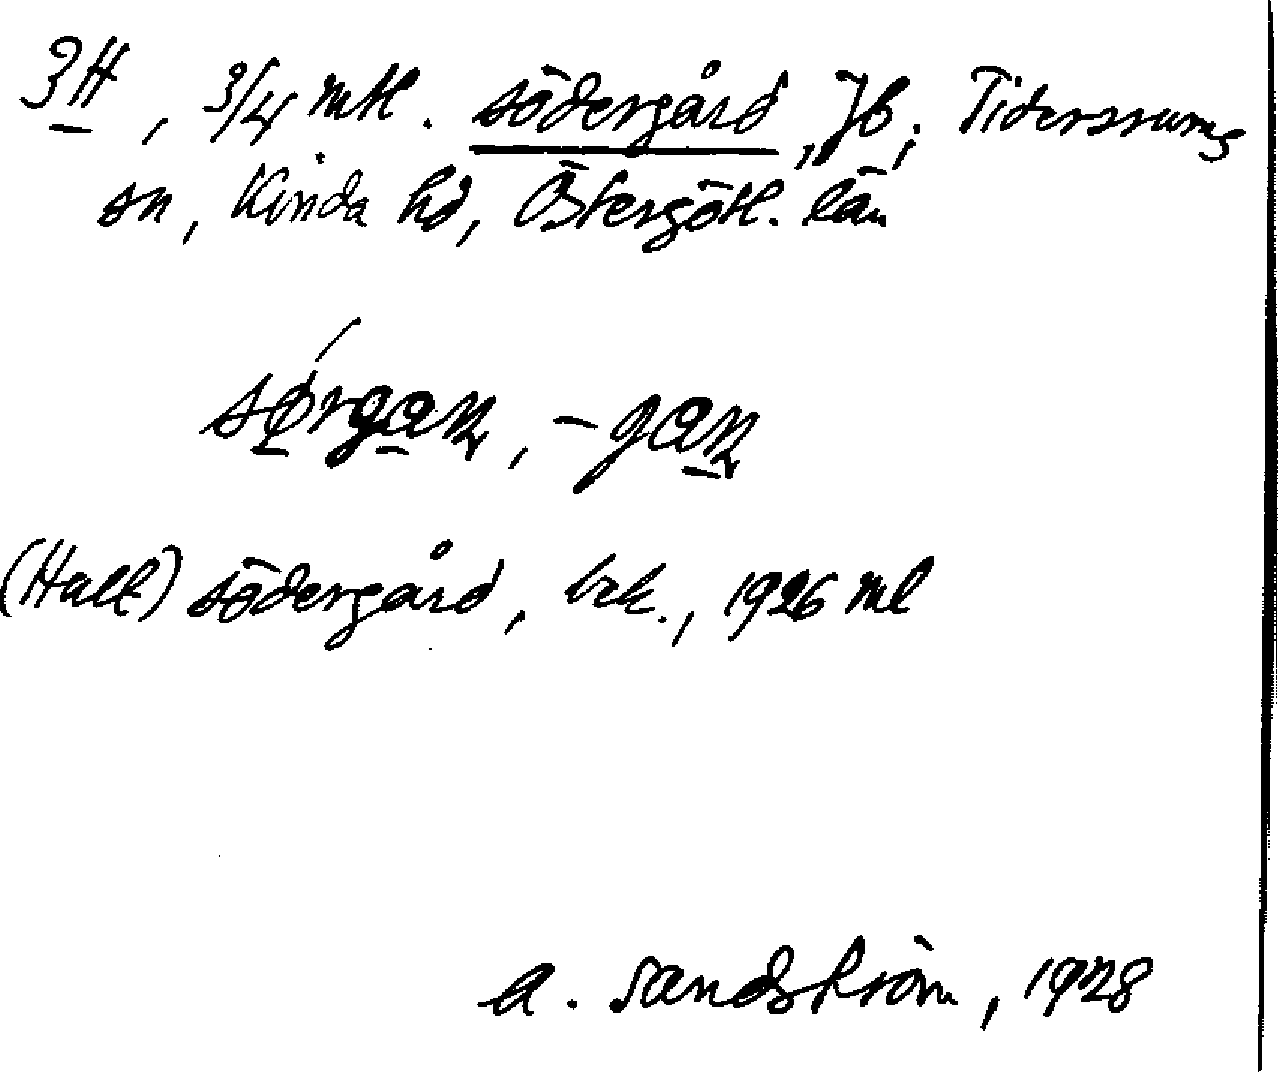 3H, 3/4 mtl. Södergård, Jb, Tidersrums
sn, Kinda hd, Östergötl. län
sørgaɳ, -gaɳ
(Hult) Södergård, 1926 ml
A. Sandström, 1928